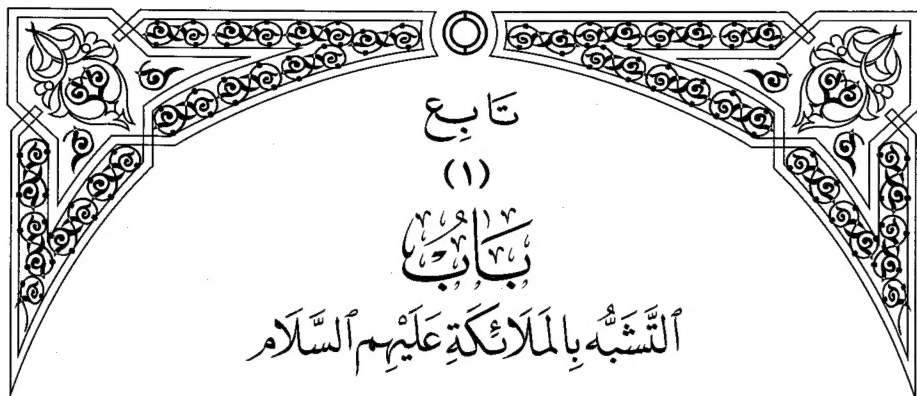 تَابِع
(١)
بَابُ
ٱلتَّشَبُّه بِالمَلَائِكَةِ عَلَيْهِم ٱلسَّلَام